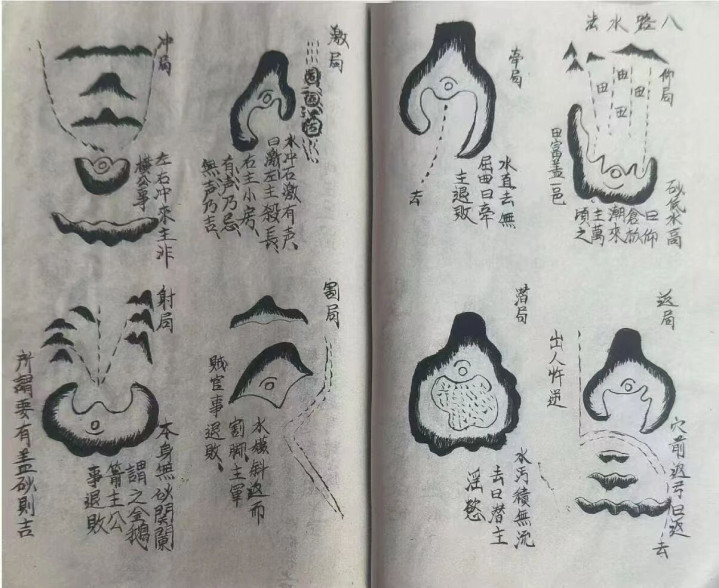 八路水法
仰局
田
田
田
田
田
砂低水高
曰仰
倉欲
潮來
主萬
頃之
田富盖一邑
牽局
水直去無
屈曲曰牽
主退敗
去
返局
穴前返弓曰返
去
出人忤逆
潜局
水污積無流
去曰潜主
淫慾
激局
水冲石激有声、
曰激左主殺長
右主小房、
有声乃忌
無声乃吉、
冲局
左右冲來主非
横公事
割局
水横斜返而
割脚主軍
賊官事退敗、
射局
本身無砂関闌
謂之金鵝
箭主公
事退敗
所謂要有盖砂則吉